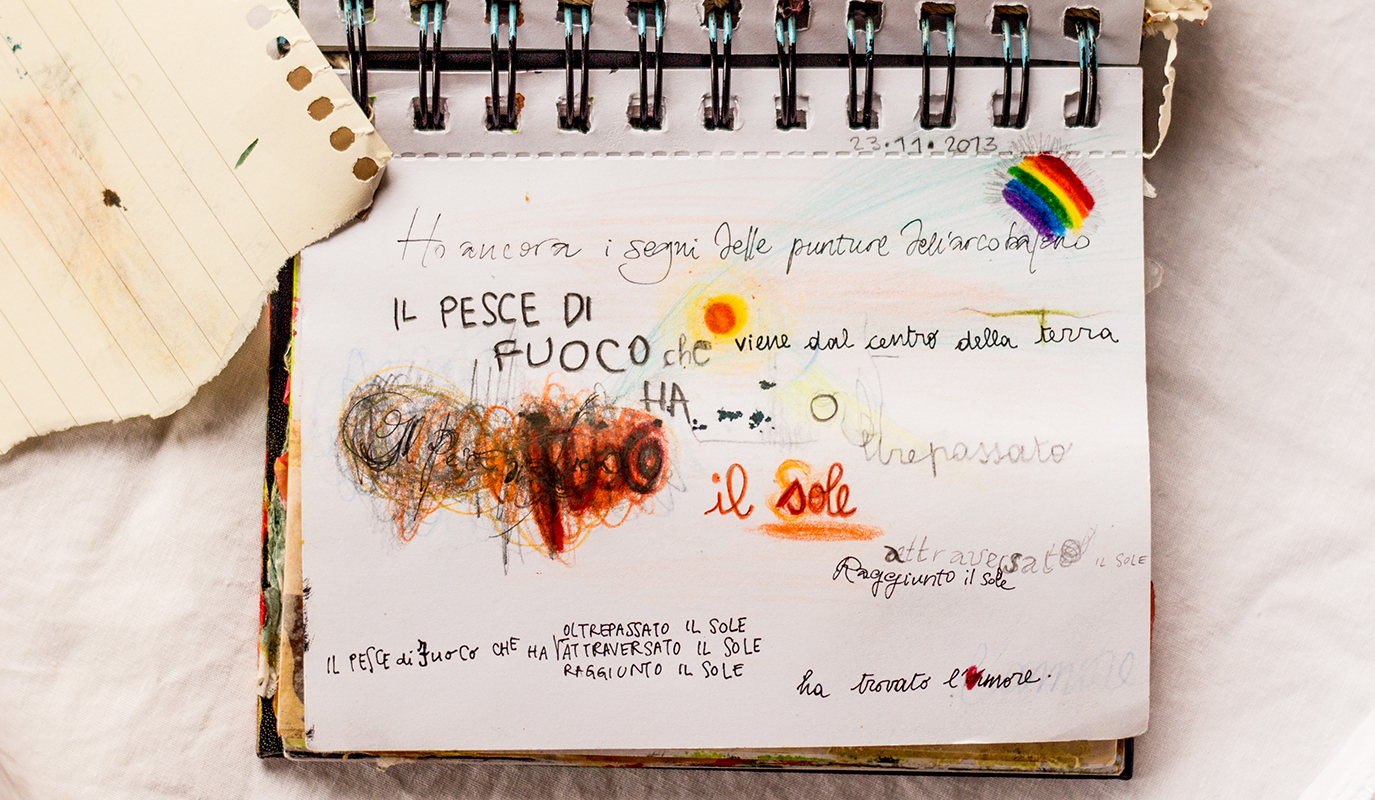 23.11.2013
Ho ancora i segni delle punture dell'arcobaleno
IL PESCE DI
FUOCO che viene dal centro della terra
HA
oltrepassato
il sole
attraversato IL SOLE
Raggiunto il sole
OLTREPASSATO IL SOLE
IL PESCE di fuoco CHE HA ATTRAVERSATO IL SOLE
RAGGIUNTO IL SOLE
ha trovato l'amore.